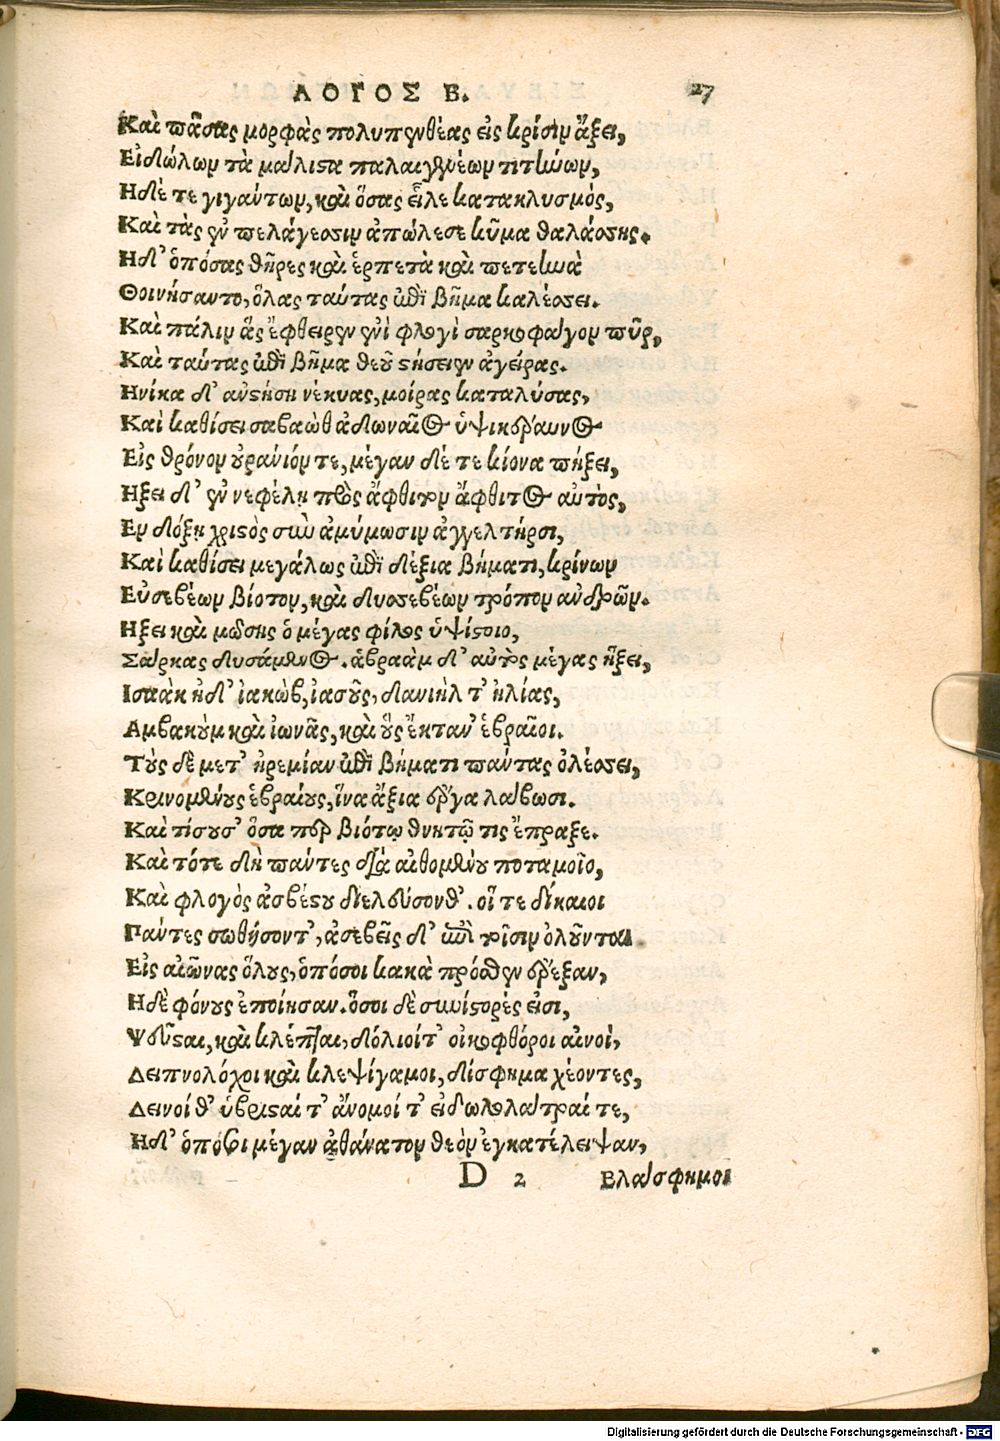 ΛΟΓΟΣ Β. 27
Καὶ πᾶσας μορφὰς πολυπενθέας εἰς κρίσιν ἄξει,
Εἰδώλων τὰ μάλιστα παλαιγενέων τιτήνων,
Ηδέ τε γιγάντων, καὶ ὅσας εἷλε κατακλυσμὸς,
Καὶ τὰς ἐν πελάγεσσιν ἀπώλεσε κῦμα θαλάσσης.
Ηδ' ὁπόσας θῆρες καὶ ἑρπετὰ καὶ πετεηνὰ
Θοινήσαντο, ὅλας ταύτας ἐπὶ βῆμα καλέσσει.
Καὶ πάλιν ἃς ἔφθειρεν ἐνὶ φλογὶ σαρκοφάγον πῦρ,
Καὶ ταύτας ἐπὶ βῆμα θεοῦ στήσειεν ἀγείρας.
Ηνίκα δ' ἀνστήσῃ νέκυας, μοίρας καταλύσας,
Καὶ καθίσει σαβαὼθ ἀδωναῖος ὑψικέραυνος
Εἰς θρόνον οὐράνιόν τε, μέγαν δέ τε κίονα πήξει,
Ηξει δ' ἐν νεφέλῃ πρὸς ἄφθιτον ἄφθιτος αὐτὸς,
Εν δόξῃ χριστὸς σὺν ἀμύμωσιν ἀγγελτῆρσι,
Καὶ καθίσει μεγάλως ἐπὶ δέξια βήματι, κρίνων
Εὐσεβέων βίοτον, καὶ δυσσεβέων τρόπον ἀνδρῶν.
Ηξει καὶ μωσῆς ὁ μέγας φίλος ὑψίστοιο,
Σάρκας δυσάμενος. ἁβραὰμ δ' αὐτὸς μέγας ἥξει,
Ισαὰκ ἠδ' ἰακὼβ, ἰασοῦς, δανιὴλ τ' ἠλίας,
Αμβακοὺμ καὶ ἰωνᾶς, καὶ οὓς ἔκταν' ἑβραῖοι.
Τοὺς δὲ μετ' ἠρεμίαν ἐπὶ βήματι πάντας ὀλέσσει,
Κρινομένους ἑβραίους, ἵνα ἄξια ἔργα λάβωσι.
Καὶ τίσουσ' ὅσα περ βιότῳ θνητῷ τις ἔπραξε.
Καὶ τότε δὴ πάντες διὰ αἰθομένου ποταμοῖο,
Καὶ φλογὸς ἀσβέστου διελεύσονθ'. οἵ τε δίκαιοι
Πάντες σωθήσοντ', ἀσεβεῖς δ' ἐπὶ τοῖσιν ὀλοῦνται
Εἰς αἰῶνας ὅλους, ὁπόσοι κακὰ πρόσθεν ἔρεξαν,
Ηδὲ φόνους ἐποίησαν. ὅσοι δὲ συνίστορές εἰσι,
Ψεῦσται, καὶ κλέπται, δόλιοί τ' οἰκοφθόροι αἰνοὶ,
Δειπνολόχοι καὶ κλεψίγαμοι, δίσφημα χέοντες,
Δεινοί θ' ὑβρισταί τ' ἄνομοί τ' εἰδωλολάτραί τε,
Ηδ' ὁπόσοι μέγαν ἀθάνατον θεὸν ἐγκατέλειψαν,
D 2 Βλάσφημοι
Digitalisierung gefördert durch die Deutsche Forschungsgemeinschaft - DFG